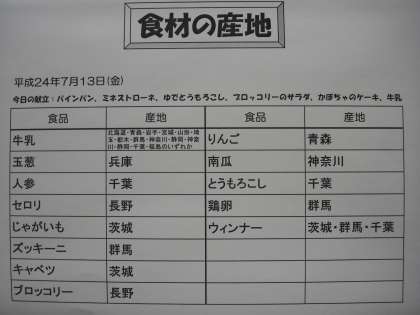 食材の産地
平成24年7月13日(金)
今日の献立:パインパン、ミネストローネ、ゆでとうもろこし、ブロッコリーのサラダ、かぼちゃのケーキ、牛乳
食品 産地 食品 産地
牛乳 りんご 青森
玉葱 兵庫 南瓜 神奈川
人参 千葉 とうもろこし 千葉
セロリ 長野 鶏卵 群馬
じゃがいも 茨城 ウィンナー 茨城・群馬・千葉
ズッキーニ 群馬
キャベツ 茨城
ブロッコリー 長野